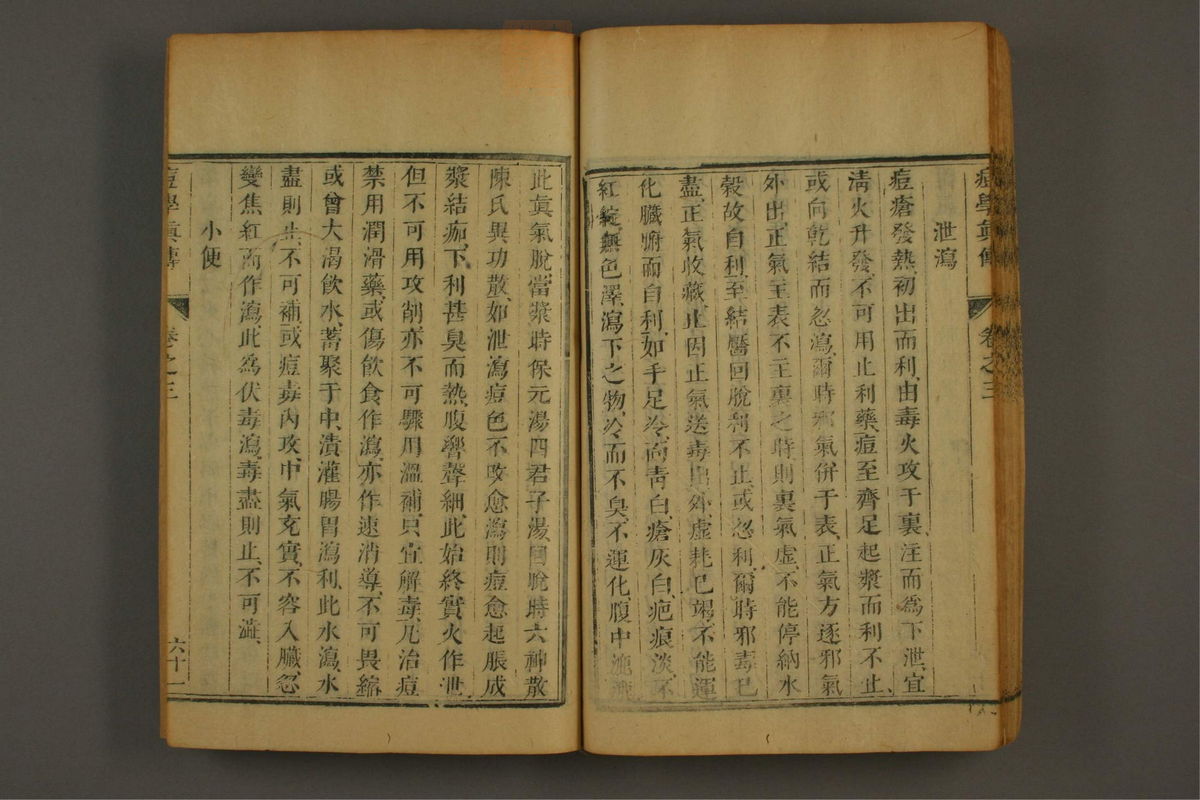 痘學眞傳 卷之三
泄瀉
痘瘡發熱、初出而利、由毒火攻于裏、注而爲下泄、宜
淸火升發、不可用止利藥、痘至齊足起漿而利不止、
或向乾結而忽瀉、爾時邪氣併于表、正氣方逐邪氣
外出、正氣主表不主裏之時、則裏氣虛、不能停納水
穀、故自利、至結靨回脫、利不止、或忽利、爾時邪毒已
盡、正氣收藏、止因正氣送毒出外、虛耗已竭、不能運
化臟腑而自利、如手足冷、面靑白、瘡灰白、疤痕淡、不
紅綻、無色澤、瀉下之物、冷而不臭、不運化、腹中
此眞氣脫、當漿時保元湯四君子湯、回脫時六神散
陳氏異功散、如泄瀉痘色不改、愈瀉則痘愈起脹成
漿結痂、下利甚臭而熱、腹響聲細、此始終實火作泄、
但不可用攻削、亦不可驟用溫補、只宜解毒、凡治痘
禁用潤滑藥、或傷飮食作瀉、亦作速消導、不可畏縮
或曾大渴飮水、蓄聚于中、潰灌腸胃瀉利、此水瀉、水
盡則止、不可補、或痘毒內攻、中氣充實、不容入臟、忽
變焦紅而作瀉、此爲伏毒瀉、毒盡則止、不可澁、
小便
痘學眞傳 卷之三 六十一